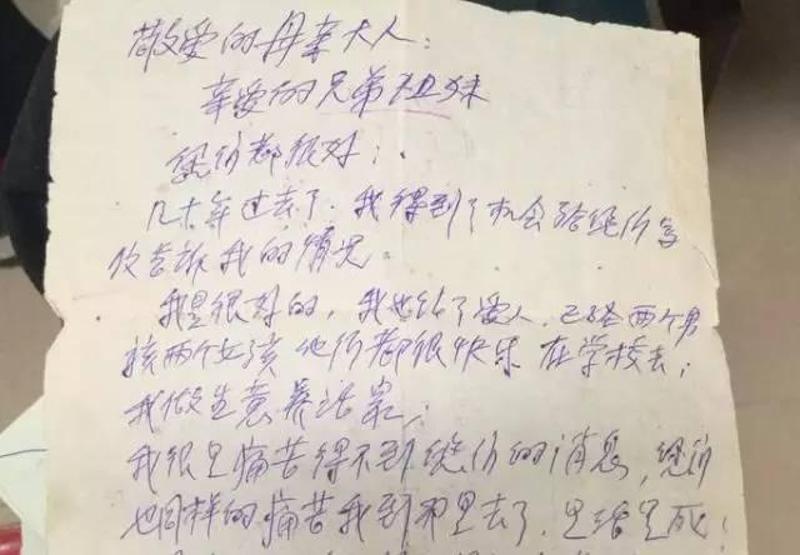 敬爱的母亲大人：
亲爱的兄弟姐妹
您们都很好；
几十年过去了．我得到了机会给您们写
信告诉我的情况．
我是很好的，我也结了爱人．已经两个男
孩两个女孩 他们都很快乐 在学校去；
我做生意养活家；
我很是痛苦得不到您们的消息，您们
也同样的痛苦我到那里去了．是活是死；